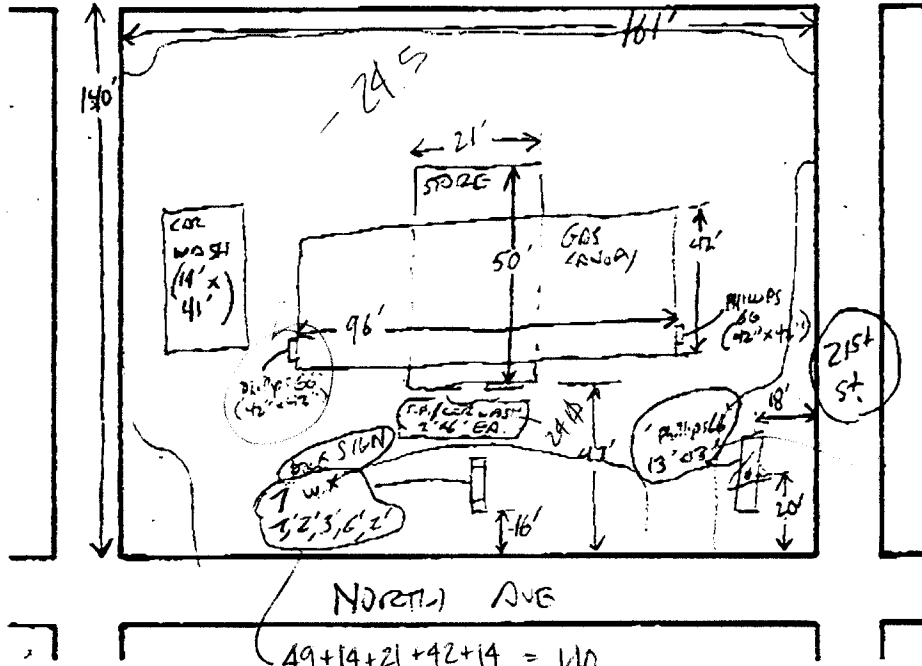 161'
140'
- 245
21'
STORE
CAR
WASH
(14' x
41')
GAS
CANOPY
50'
42'
96'
PHILLIPS
66
(42" x 42")
Phillips 66
(42" x 42")
21st
St.
18'
CAR WASH
2' x 6' EA.
24
43'
Phillips 66
13' x 13'
SIGN
7' W x
7', 2', 3', 6', 2'
16'
20'
NORTH AVE
49+14+21+42+14 = 140